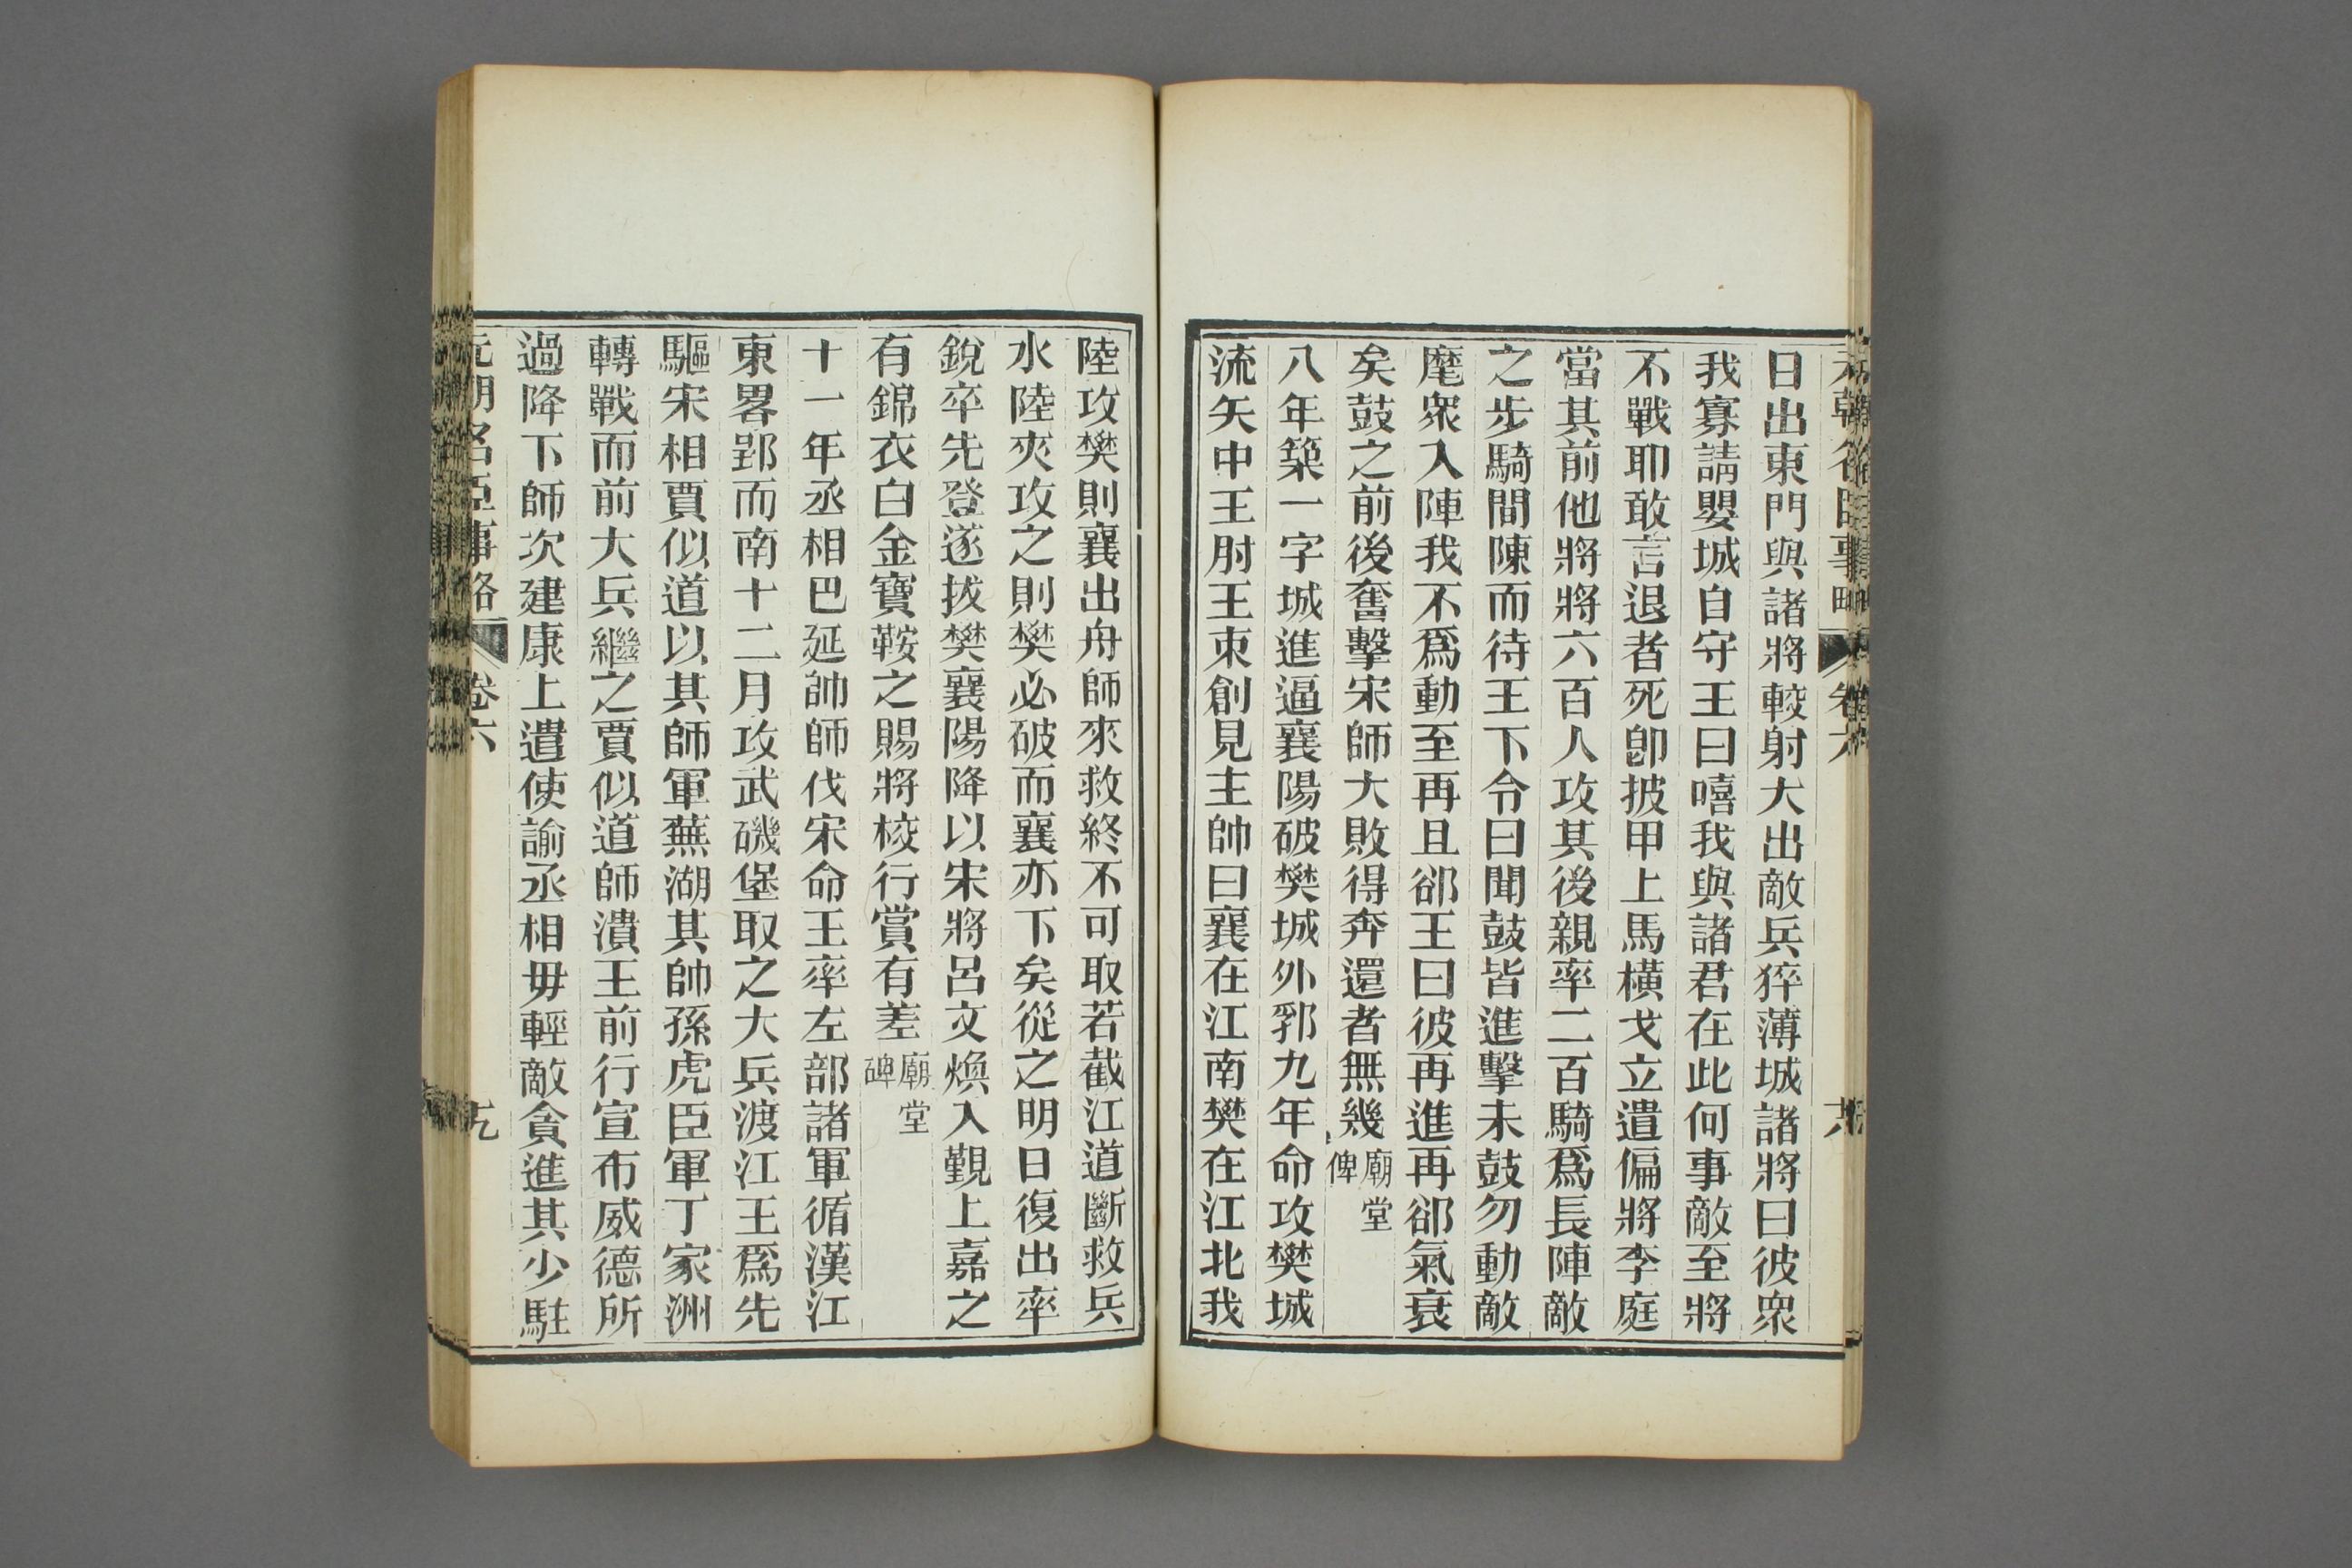 日出東門與諸將較射大出敵兵猝薄城諸將曰彼衆
我寡請嬰城自守王曰嘻我與諸君在此何事敵至將
不戰耶敢言退者死卽披甲上馬橫戈立遣偏將李庭
當其前他將將六百人攻其後親率二百騎爲長陣敵
之步騎間陳而待王下令曰聞鼓皆進擊未鼓勿動敵
麾衆入陣我不爲動至再且郤王曰彼再進再郤氣衰
矣鼓之前後奮擊宋師大敗得奔還者無幾廟堂碑
八年築一字城進逼襄陽破樊城外郛九年命攻樊城
流矢中王肘王束創見主帥曰襄在江南樊在江北我
陸攻樊則襄出舟師來救終不可取若截江道斷救兵
水陸夾攻之則樊必破而襄亦下矣從之明日復出率
銳卒先登遂拔樊襄陽降以宋將呂文煥入覲上嘉之
有錦衣白金寶鞍之賜將校行賞有差廟堂碑
十一年丞相巴延帥師伐宋命王率左部諸軍循漢江
東畧郢而南十二月攻武磯堡取之大兵渡江王爲先
驅宋相賈似道以其師軍蕪湖其帥孫虎臣軍丁家洲
轉戰而前大兵繼之賈似道師潰王前行宣布威德所
過降下師次建康上遣使諭丞相毋輕敵貪進其少駐
元朝名臣事略 卷六 十九